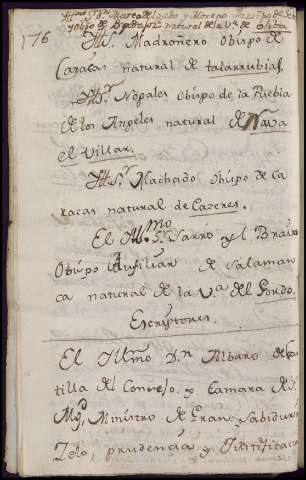 Yllmo. Sr. Dn. Marcos de
y Obpo. de natural de la Va. de
176 Yll. Sr. Madroñero Obispo de
Caracas natural de talarrubias.
Yll. Sr. Nopales Obispo de la Puebla
de los Angeles natural de Nava
el Villar.
Yll. Sr. Machado obispo de Ca
racas natural de Cazeres.
El Yll.mo Sr. Sarro y l Bravo
Obispo Ausiliar de Salaman
ca natural de la Va. del Gordo.
Escriptores.
El Yllmo Sr. Dn Albaro de Cas
tilla del Consejo y Camara de S.
Mgd. Ministro de Gran Sabiduria
Zelo, prudencia y Justificacion